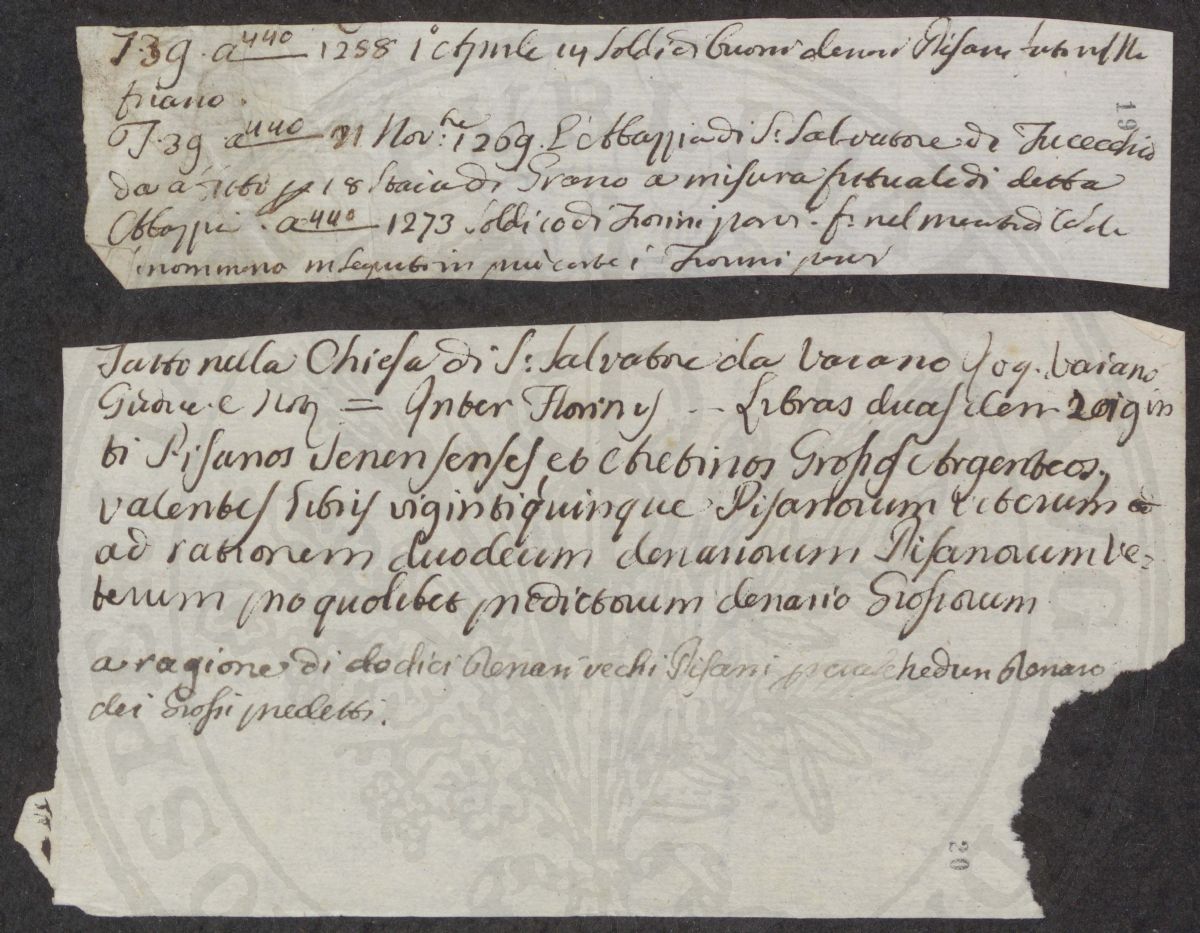 T. 39. a 440 1288 1° Aprile 14 Soldi di buoni denari Pisani
friano.
T. 39 a 440 21 Nov.bre 1269. L'Abbazzia di S. Salvatore di Fucecchio
da a fitto p 18 Staia di Grano a misura fittuale di detta
Abbazzia. a 440 1273 Soldi 10 di Fiorini parvi.
si nominano in seguito in più carte i Fiorini parvi
Fatto nella Chiesa di S. Salvatore da Vaiano Vaiano
Giudice e Not = Inter Florinis -- Libras duas den vigin
ti Pisanos Senensenses et Aretinos Grossos Argenteos,
valentes Libris vigintiquinque Pisanorum Veterum
ad rationem duodecim denariorum Pisanorum Ve-
terum pro quolibet predictorum denario Grossorum
a ragione di dodici Denari vechi Pisani p ciaschedun Denaro
dei Grossi predetti.
19
20